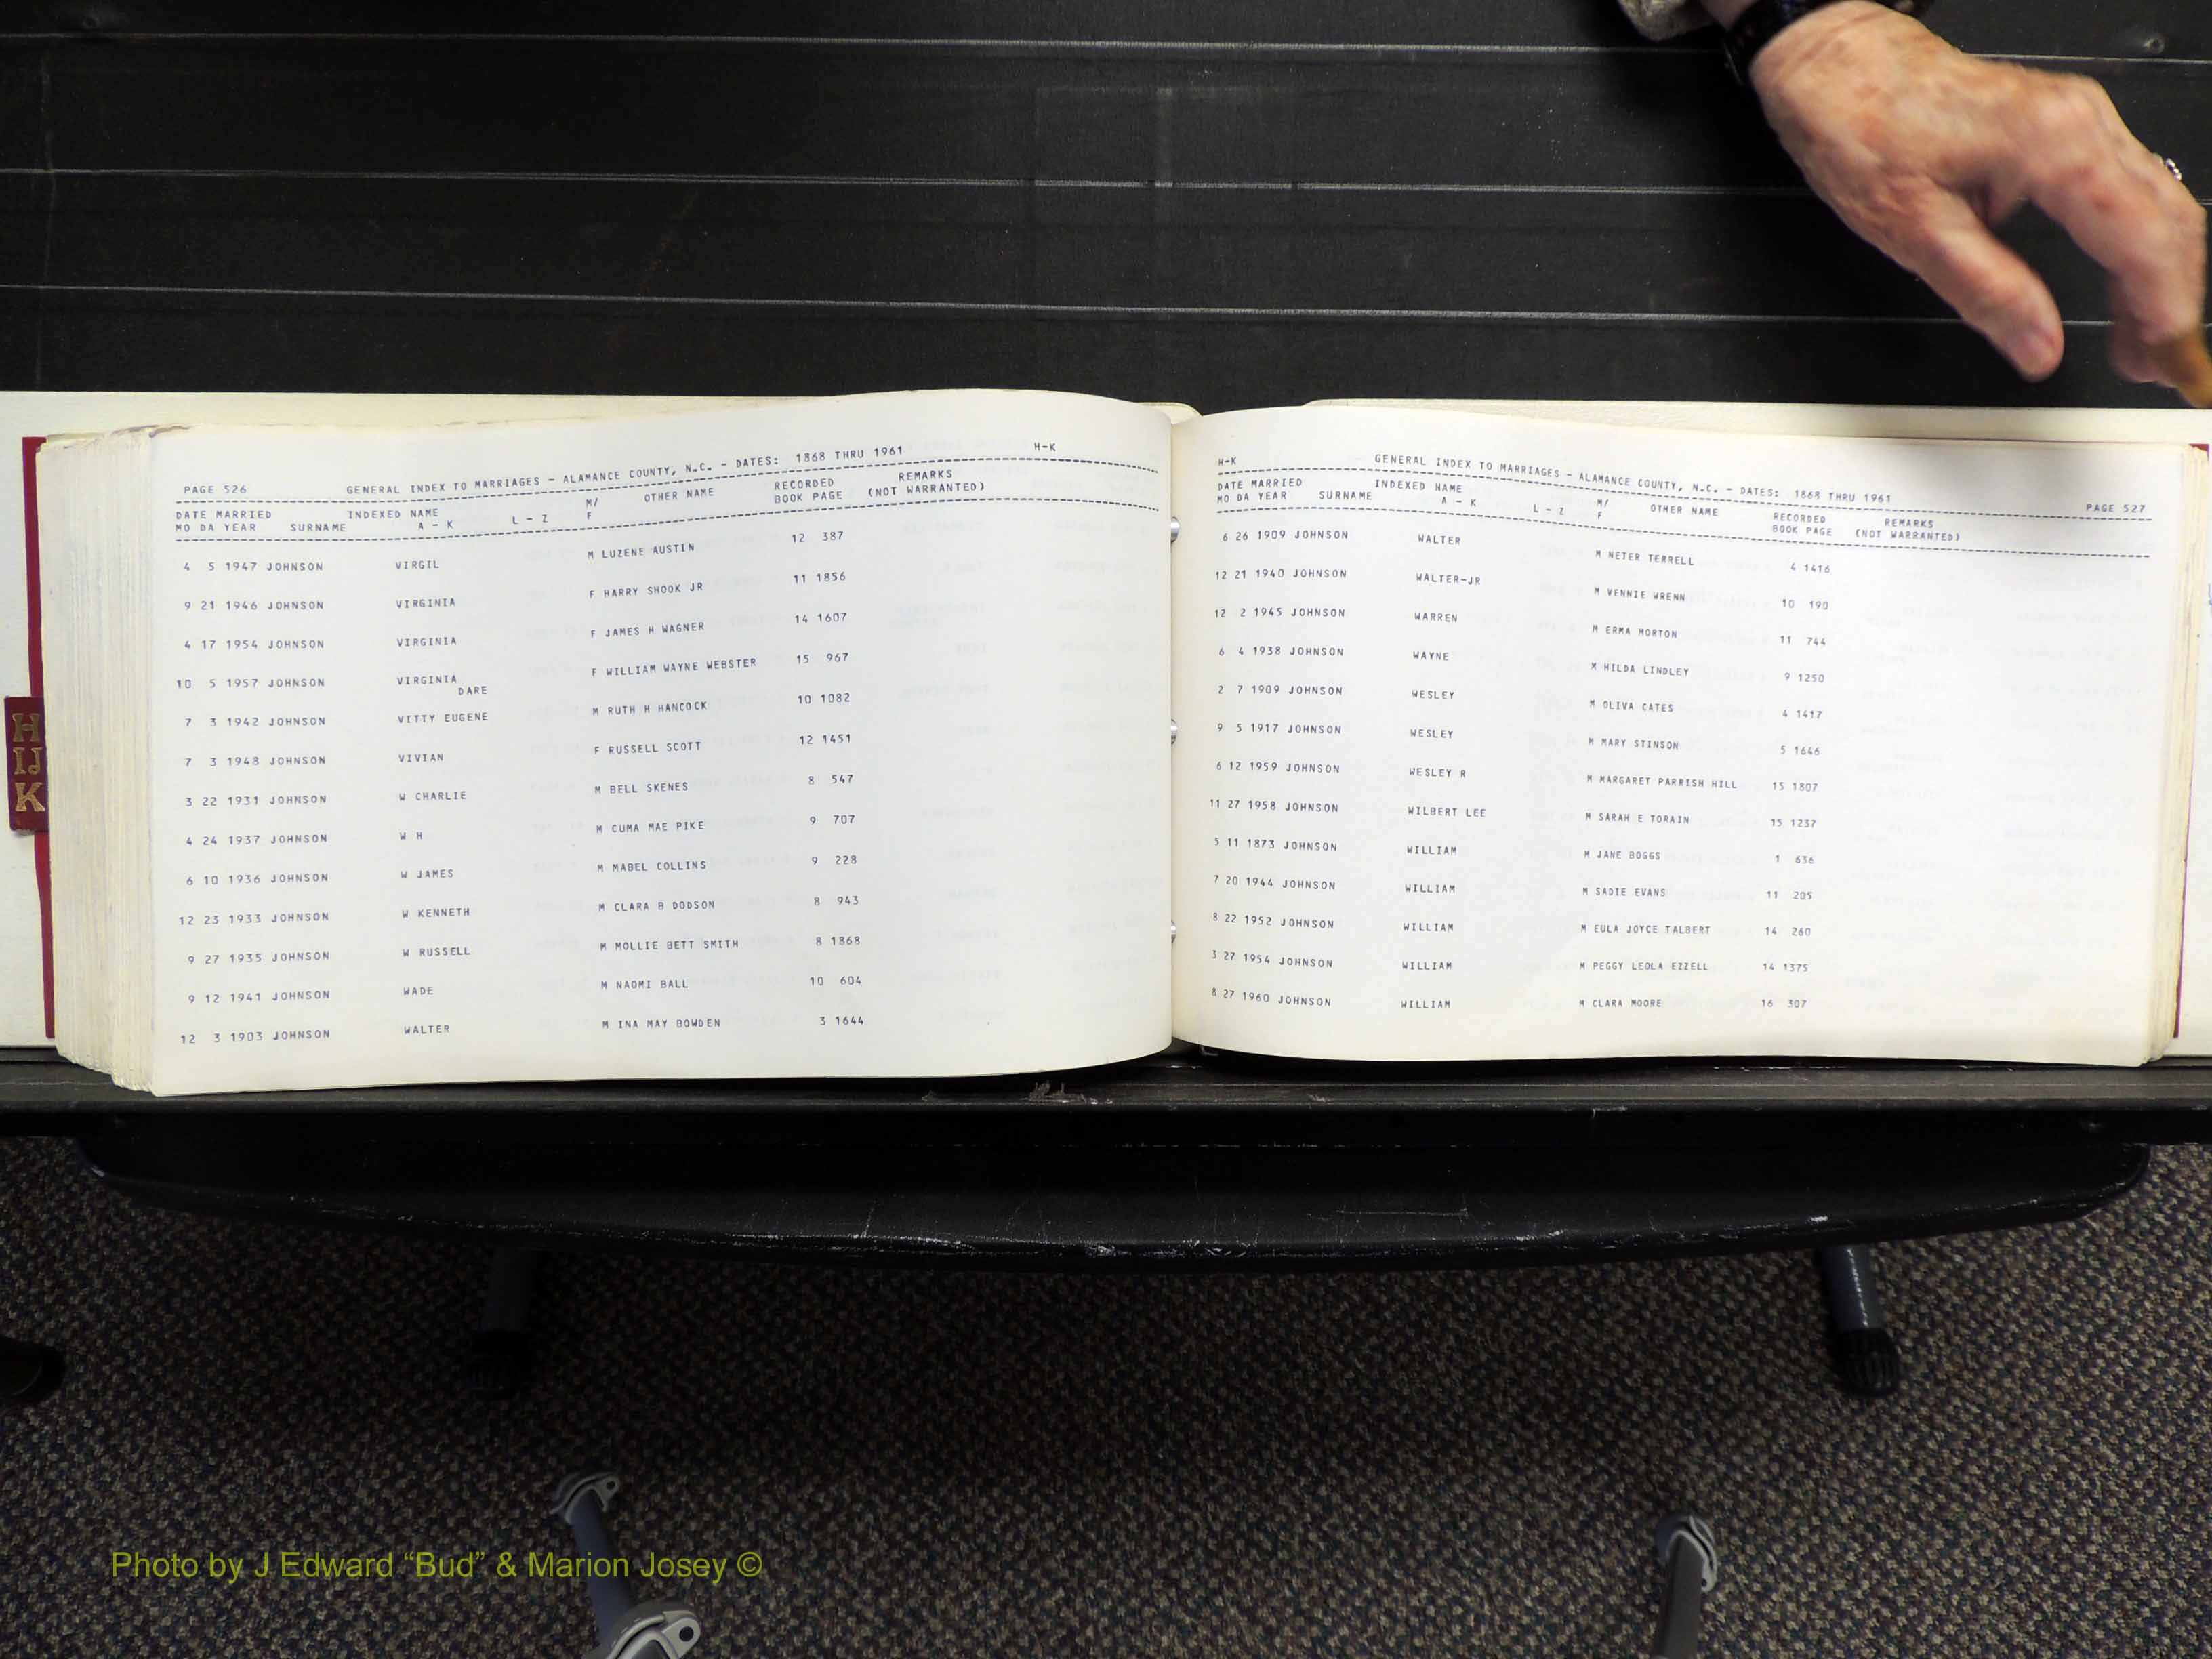 PAGE 526 GENERAL INDEX TO MARRIAGES - ALAMANCE COUNTY, N.C. - DATES: 1868 THRU 1961 H-K
DATE MARRIED INDEXED NAME M/ OTHER NAME RECORDED REMARKS
MO DA YEAR SURNAME A - K L - Z F BOOK PAGE (NOT WARRANTED)
4 5 1947 JOHNSON VIRGIL M LUZENE AUSTIN 12 387
9 21 1946 JOHNSON VIRGINIA F HARRY SHOOK JR 11 1856
4 17 1954 JOHNSON VIRGINIA F JAMES H WAGNER 14 1607
10 5 1957 JOHNSON VIRGINIA F WILLIAM WAYNE WEBSTER 15 967
DARE
7 3 1942 JOHNSON VITTY EUGENE M RUTH H HANCOCK 10 1082
7 3 1948 JOHNSON VIVIAN F RUSSELL SCOTT 12 1451
3 22 1931 JOHNSON W CHARLIE M BELL SKENES 8 547
4 24 1937 JOHNSON W H M CUMA MAE PIKE 9 707
6 10 1936 JOHNSON W JAMES M MABEL COLLINS 9 228
12 23 1933 JOHNSON W KENNETH M CLARA B DODSON 8 943
9 27 1935 JOHNSON W RUSSELL M MOLLIE BETT SMITH 8 1868
9 12 1941 JOHNSON WADE M NAOMI BALL 10 604
12 3 1903 JOHNSON WALTER M INA MAY BOWDEN 3 1644
H-K GENERAL INDEX TO MARRIAGES - ALAMANCE COUNTY, N.C. - DATES: 1868 THRU 1961 PAGE 527
DATE MARRIED INDEXED NAME M/ OTHER NAME RECORDED REMARKS
MO DA YEAR SURNAME A - K L - Z F BOOK PAGE (NOT WARRANTED)
6 26 1909 JOHNSON WALTER M NETER TERRELL 4 1416
12 21 1940 JOHNSON WALTER-JR M VENNIE WRENN 10 190
12 2 1945 JOHNSON WARREN M ERMA MORTON 11 744
6 4 1938 JOHNSON WAYNE M HILDA LINDLEY 9 1250
2 7 1909 JOHNSON WESLEY M OLIVA CATES 4 1417
9 5 1917 JOHNSON WESLEY M MARY STINSON 5 1646
6 12 1959 JOHNSON WESLEY R M MARGARET PARRISH HILL 15 1807
11 27 1958 JOHNSON WILBERT LEE M SARAH E TORAIN 15 1237
5 11 1873 JOHNSON WILLIAM M JANE BOGGS 1 636
7 20 1944 JOHNSON WILLIAM M SADIE EVANS 11 205
8 22 1952 JOHNSON WILLIAM M EULA JOYCE TALBERT 14 260
3 27 1954 JOHNSON WILLIAM M PEGGY LEOLA EZZELL 14 1375
8 27 1960 JOHNSON WILLIAM M CLARA MOORE 16 307
H
IJ
K
Photo by J Edward “Bud” & Marion Josey ©